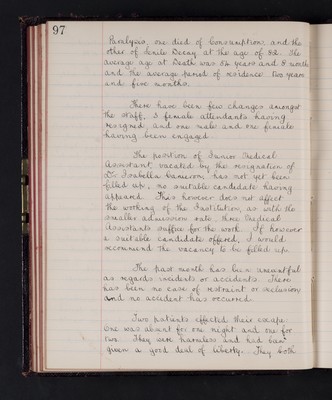 97
Paralysis, one died of Consumption, and the
other of Senile Decay at the age of 82. The
average age at Death was 54 years and 8 months
and the average period of residence two years
and five months.
There have been few changes amongst
the staff, 3 female attendants having
resigned, and one male and one female
having been engaged.
The position of Junior Medical
Assistant, vacated by the resignation of
Dr. Isabella Cameron, has not yet been
filled up, no suitable candidate having
appeared. This however does not affect
the working of the Institution, as with the
smaller admission rate, three Medical
Assistants suffice for the work. If however
a suitable candidate offered, I would
recommend the vacancy to be filled up.
The past month has been uneventful
as regards incidents or accidents. There
has been no case of restraint or seclusion
and no accident has occurred.
Two patients effected their escape.
One was absent for one night and one for
two. They were harmless and had been
given a good deal of liberty. They both